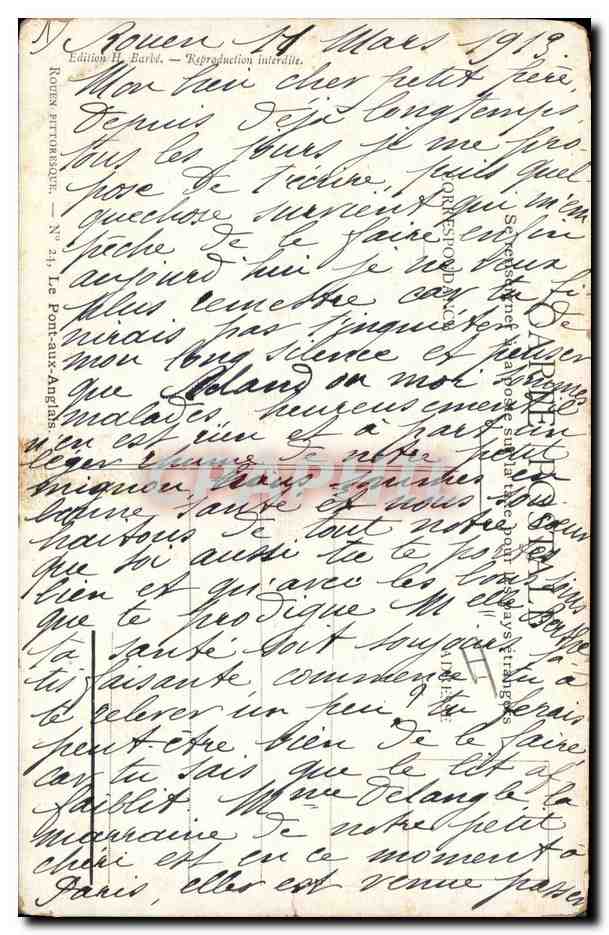 1) Rouen 11 Mars 1913.
Edition H. Barbé. — Reproduction interdite.
Mon bien cher petit père
Depuis déjà longtemps,
tous les jours je me pro-
pose de t'écrire, puis quel
quechose survient qui m'em
pêche de le faire enfin
aujourd'hui je ne veux
plus remettre car tu fi-
nirais pas t'inquieter de
mon long silence et penser
que Roland ou moi sommes
malades, heureusement il
n'en est rien et à part un
léger rhume de notre petit
mignon, nous sommes en
bonne santé et nous sou
haitons de tout notre coeur
que toi aussi tu te portes
bien et qu'avec les bons soins
que te prodigue Melle
ta santé soit toujours sa-
tisfaisante commence tu à
te relever un peu? tu ferais
peut-être bien de le faire
car tu sais que le lit af
faiblit. Mme Delangle la
marraine de notre petit
chéri est en ce moment à
Paris, elle est venue passer
ROUEN PITTORESQUE. — N° 24, Le Pont-aux-Anglais.
CARTE POSTALE
Se renseigner à la poste sur la taxe pour les pays étrangers
CORRESPONDANCE
ADRESSE
CPAPHIL